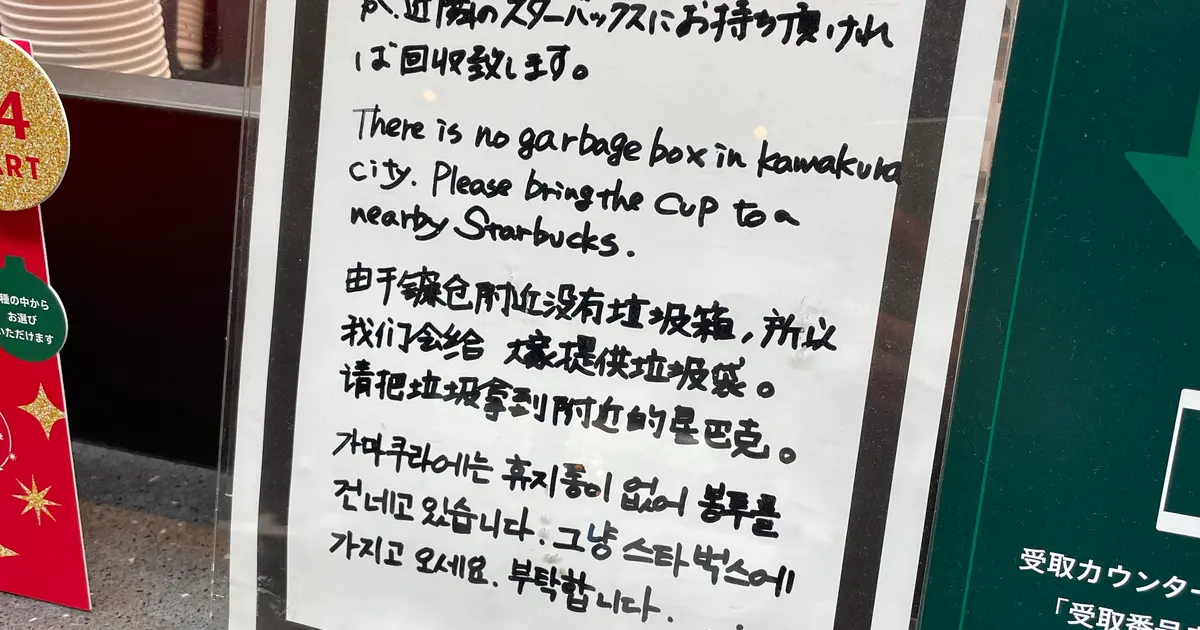 が、近隣のスターバックスにお持ち頂けれ
ば回収致します。
There is no garbage box in kamakura
city. Please bring the cup to a
nearby Starbucks.
由于镰仓附近没有垃圾箱,所以
我们会给 大家提供垃圾袋。
请把垃圾拿到附近的星巴克。
가마쿠라에는 휴지통이 없어 봉투를
건네고 있습니다. 그냥 스타벅스에
가지고 오세요. 부탁합니다.
4
ART
種の中から
お選び
いただけます
受取カウンター
「受取番号